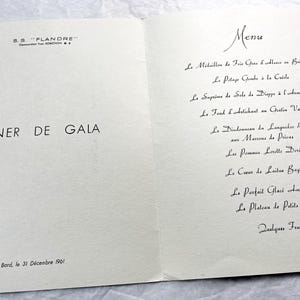 S.S. "FLANDRE"
NER DE GALA
Bord, le 31 Décembre 1961
Menu
Le Médaillon de Foie Gras d'Alsace en
Le Potage Gombo à la Créole
Le Suprême de Sole de Dieppe à
Le Fond d'Artichaut au Gratin
Le Dindonneau du Languedoc
aux Marrons de
Les Pommes Lorette
Le Cœur de Laitue
Le Parfait Glacé
Le Plateau de Petits
Quelques